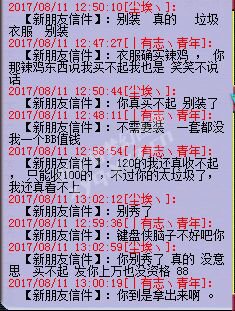 2017/08/11 12:50:10[尘埃丶]:
【新朋友信件】：别装 真的 垃圾
衣服 别装
2017/08/11 12:47:27[丨有志丶青年]:
【新朋友信件】：衣服确实辣鸡 ，你
那辣鸡东西说我买不起我也是 笑笑不说
话
2017/08/11 12:50:44[尘埃丶]:
【新朋友信件】：你真买不起 别装了
2017/08/11 12:48:11[丨有志丶青年]:
【新朋友信件】：不需要装 一套都没
我一个BB值钱
2017/08/11 12:58:54[丨有志丶青年]:
【新朋友信件】：120的我还真收不起
，只能收100的 ，不过你的太垃圾了，
我还真看不上
2017/08/11 13:02:12[尘埃丶]:
【新朋友信件】：别秀了
2017/08/11 12:59:36[丨有志丶青年]:
【新朋友信件】：键盘侠脑子不好吧你
2017/08/11 13:02:59[尘埃丶]:
【新朋友信件】：别秀了 真的 没意
思 买不起 发你上万也没资格 88
2017/08/11 13:00:19[丨有志丶青年]:
【新朋友信件】：你到是拿出来啊 。